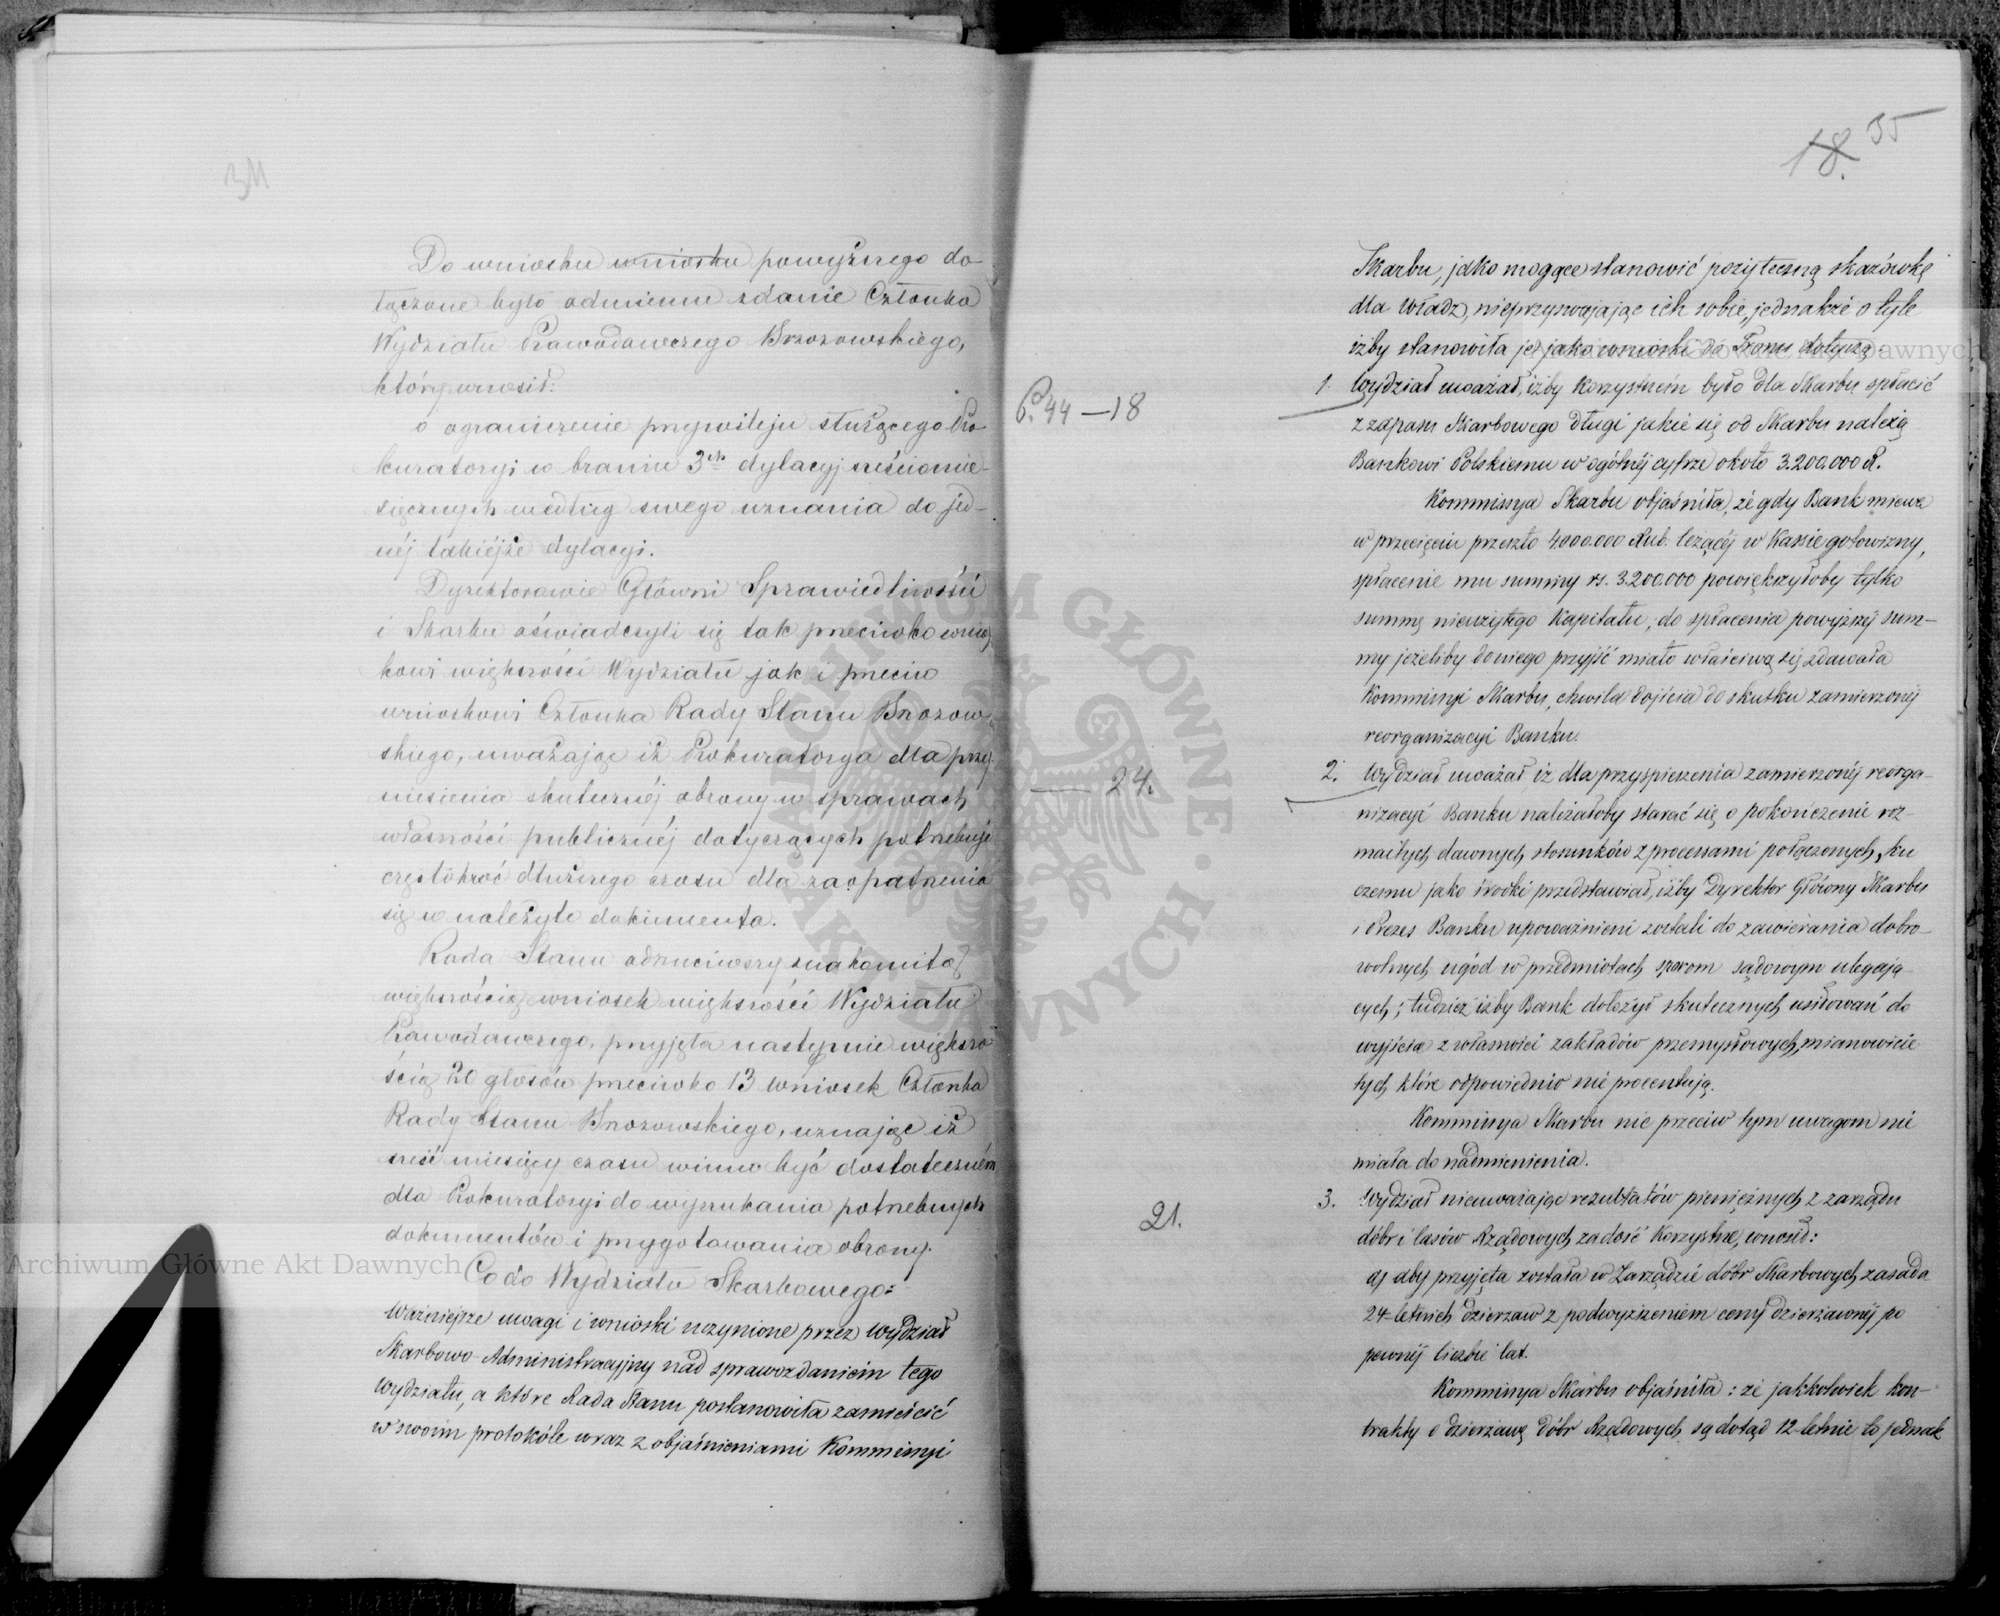 34
Do wniosku wniosku powyższego do-
łączone było odmienne zdanie Członka
Wydziału Prawodawczego Brzozowskiego,
który wnosił:
o ograniczenie przywileju służącego Pro-
kuratoryi w braniu 3ch dylacyj sześciomie-
sięcznych według swego uznania do jed-
néj takiéjże dylacyi.
Dyrektorowie Główni Sprawiedliwości
i Skarbu oświadczyli się tak przeciwko wnios-
kowi większości Wydziału jak i przeciw
wnioskowi Członka Rady Stanu Brzozow-
skiego, uważając iż Prokuratorya dla przy-
niesienia skutecznéj obrony w sprawach
własności publicznéj dotyczących potrzebuje
częstokroć dłuższego czasu dla zaopatrzenia
się w należyte dokumenta.
Rada Stanu odrzuciwszy znakomitą
większością wniosek większości Wydziału
Prawodawczego, przyjęła następnie większo-
ścią 20 głosów przeciwko 13 wniosek Członka
Rady Stanu Brzozowskiego, uznając iż
sześć miesięcy czasu winno być dostateczném
dla Prokuratoryi do wyszukania potrzebnych
dokumentów i przygotowania obrony.
Co do Wydziału Skarbowego:
Ważniejsze uwagi i wnioski uczynione przez Wydział
Skarbowo-Administracyjny nad sprawozdaniem tego
Wydziału, a które Rada Stanu postanowiła zamieścić
w swoim protokóle wraz z objaśnieniami Kommissyi
18. 35
Skarbu, jako mogące stanowić pożyteczną skazówkę
dla Władz, nieprzyswajając ich sobie, jednakże o tyle
iżby stanowiła je jako wnioski do Tronu dotyczą:
P. 44 — 18
1. Wydział uważał, iżby korzystném było dla Skarbu spłacić
z zapasu Skarbowego długi jakie się od Skarbu należą
Bankowi Polskiemu w ogólnéj cyfrze około 3.200.000 R.
Kommissya Skarbu objaśniła, że gdy Bank miewa
w przecięciu przeszło 4.000.000 Rub. leżącéj w Kassie gotowizny,
spłacenie mu summy rs. 3.200.000 powiększyłoby tylko
summę nieużytego Kapitału, do spłacenia powyższéj sum-
my jeżeliby do niego przyjść miało właściwą się zdawała
Kommissyi Skarbu, chwila dojścia do skutku zamierzonéj
reorganizacyi Banku.
— 24.
2. Wydział uważał, iż dla przyspieszenia zamierzonéj reorga-
nizacyi Banku należałoby starać się o pokończenie roz-
maitych dawnych stosunków z processami połączonych, ku
czemu jako środki przedstawiał, iżby Dyrektor Główny Skarbu
i Prezes Banku upoważnieni zostali do zawierania dobro-
wolnych ugód w przedmiotach sporom sądowym ulegają-
cych; tudzież iżby Bank dołożył skutecznych usiłowań do
wyjścia z własności zakładów przemysłowych, mianowicie
tych które odpowiednio nie procentują.
Kommissya Skarbu nic przeciw tym uwagom nie
miała do nadmienienia.
21.
3. Wydział nieuważając rezultatów pieniężnych z zarządu
dóbr i lasów Rządowych za dość korzystne, wnosił:
a) aby przyjęta została w Zarządzie dóbr Skarbowych zasada
24-letnich dzierżaw z podwyższeniem ceny dzierżawnéj po
pewnéj liczbie lat.
Kommissya Skarbu objaśniła: że jakkolwiek kon-
trakty o dzierżawę dóbr Rządowych są dotąd 12-letnie to jednak
Archiwum Główne Akt Dawnych
ARCHIWUM GŁÓWNE AKT DAWNYCH